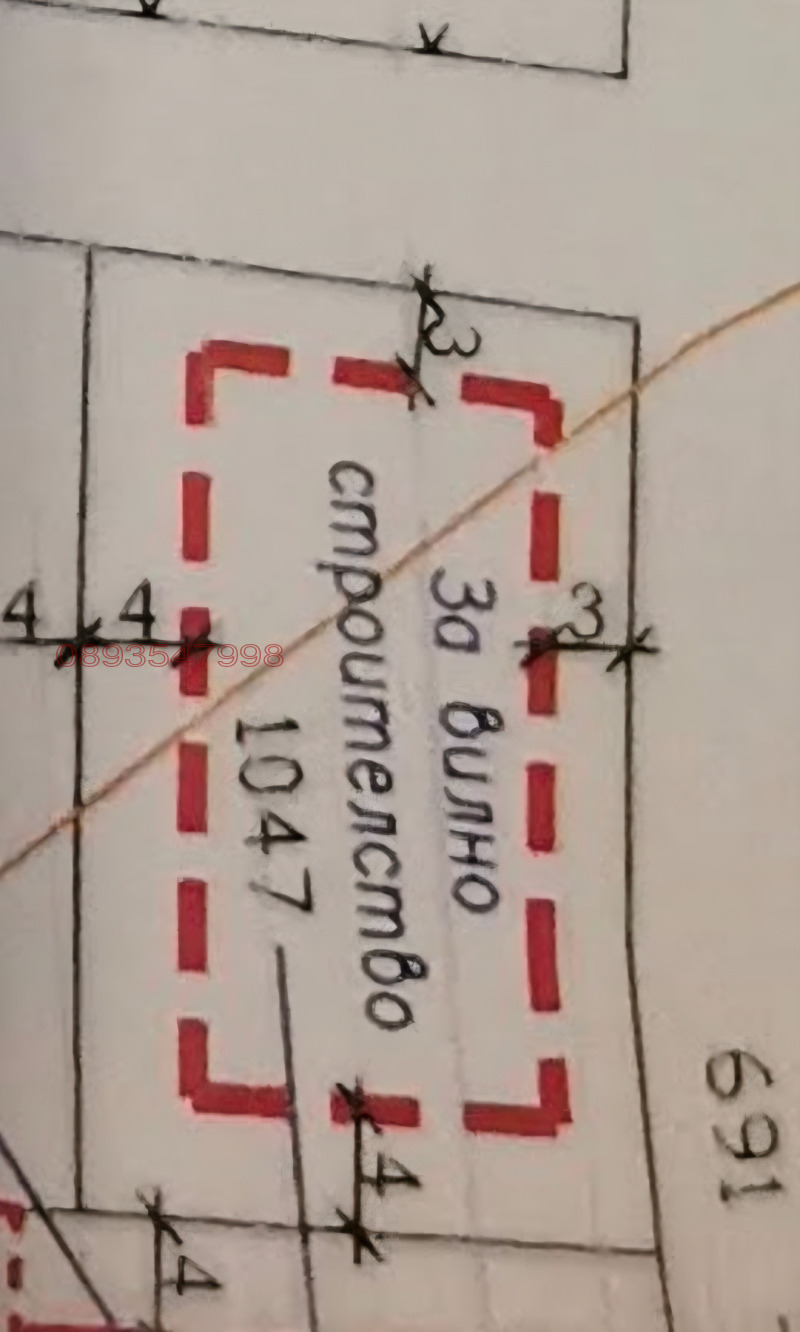 3
За вилно
строителство
1047
3
4
4
0893547998
4
4
691